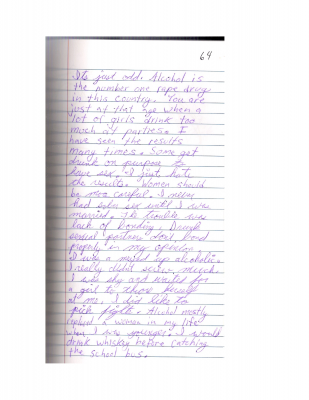 64
Its just odd. Alcohol is
the number one rape drug
in this country. You are
just at that age when a
lot of girls drink too
much at parties. I
have seen the results
many times. Some get
drunk on purpose to
have sex. I just hate
the results. Women should
be more careful. I never
had sober sex until I was
married. The trouble was
lack of bonding. Drunk
sexual partners dont bond
properly in my opinion.
I was a mixed up alcoholic.
I really didnt screw much.
I was shy and waited for
a girl to throw herself
at me. I did like to
pick fights. Alcohol mostly
replaced a woman in my life
when I was younger. I would
drink whiskey before catching
the school bus.